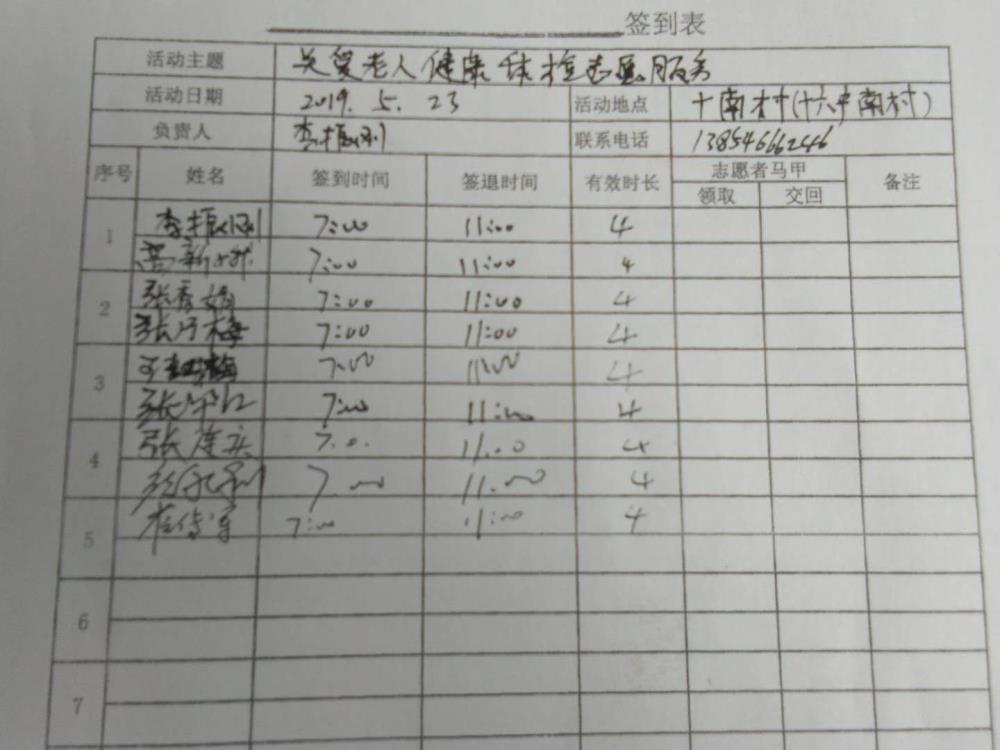 签到表
活动主题 关爱老人健康体检志愿服务
活动日期 2019.5.23 活动地点 十南村(十六户南村)
负责人 李振刚 联系电话
序号 姓名 签到时间 签退时间 有效时长 志愿者马甲 备注
领取 交回
1 李振刚 7:00 11:00 4
7:00 11:00 4
2 张秀娟 7:00 11:00 4
张 梅 7:00 11:00 4
3 梅 7:00 11:00 4
张 7:00 11:00 4
4 张 7:00 11:00 4
7:00 11:00 4
5 7:00 11:00 4
6
7